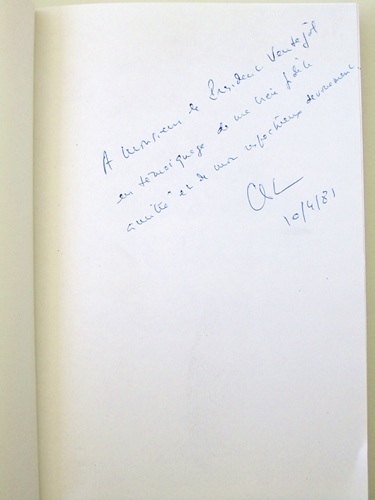 A Monsieur le Président Ventejol
en témoignage de ma bien fidèle
amitié et de mon respectueux dévouement.
10/4/81